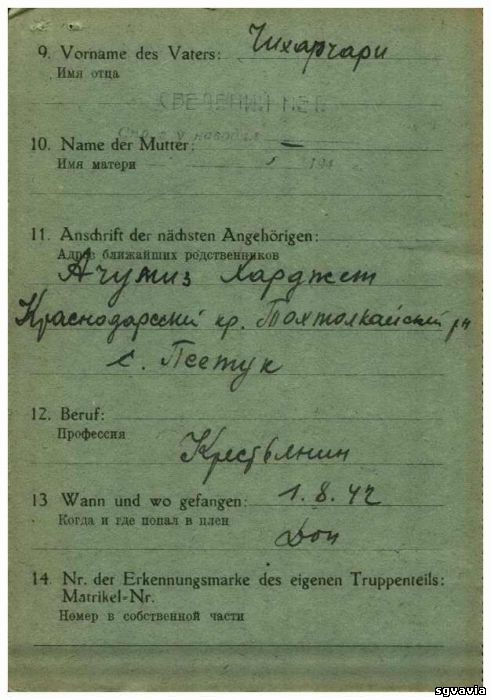 9. Vorname des Vaters: Чихарчари
Имя отца
СВЕДЕНИЙ НЕТ
10. Name der Mutter: –
Имя матери
11. Anschrift der nächsten Angehörigen:
Адрес ближайших родственников
Ачумиз Харджет
Краснодарский кр. Тахтамкайский рн
с. Псетук
12. Beruf:
Профессия
Крестьянин
13 Wann und wo gefangen: 1.8.42
Когда и где попал в плен
Дон
14. Nr. der Erkennungsmarke des eigenen Truppenteils:
Matrikel-Nr.
Номер в собственной части
sgvavia